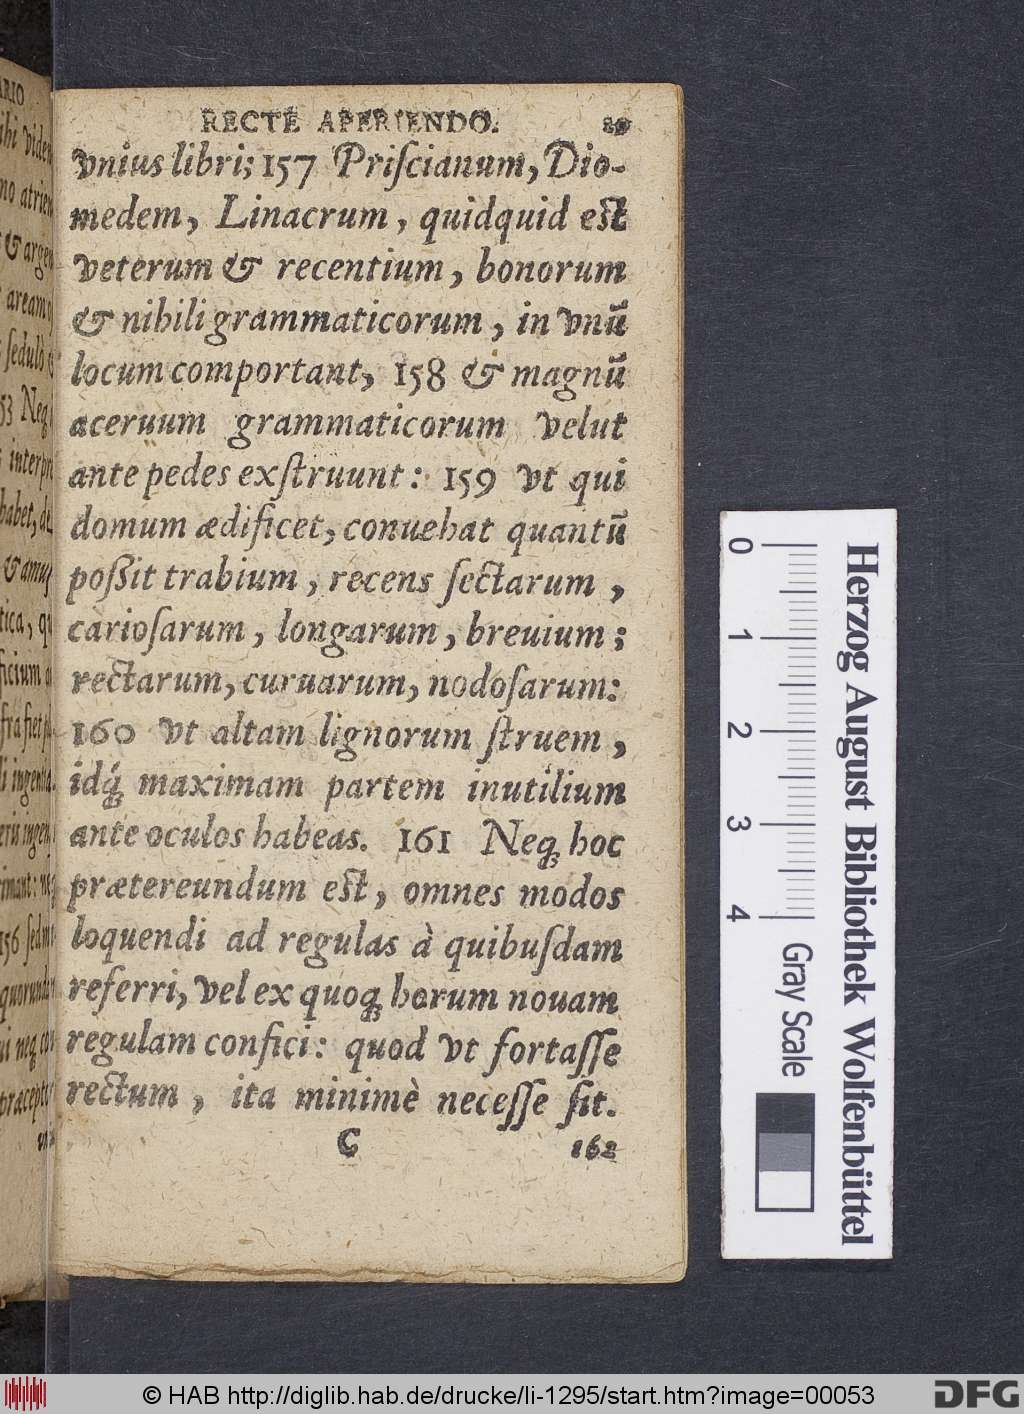 RECTE APERIENDO. 29
vnius libri; 157 Priſcianum, Dio-
medem, Linacrum, quidquid est
veterum & recentium, bonorum
& nihili grammaticorum, in vnū
locum comportant, 158 & magnū
aceruum grammaticorum velut
ante pedes exſtruunt: 159 vt qui
domum ædificet, conuehat quantū
poſsit trabium, recens ſectarum,
carioſarum, longarum, breuium;
rectarum, curuarum, nodoſarum:
160 vt altam lignorum ſtruem,
idq́; maximam partem inutilium
ante oculos habeas. 161 Neq; hoc
prætereundum est, omnes modos
loquendi ad regulas à quibuſdam
referri, vel ex quoq; horum nouam
regulam confici: quod vt fortaſſe
rectum, ita minimè neceſſe ſit.
C 162
ARIO
& argen
aream
ſedulò
53 Neq
interpr
habet, de
156 ſed
0
1
2
3
4
Gray Scale
Herzog August Bibliothek Wolfenbüttel
© HAB http://diglib.hab.de/drucke/li-1295/start.htm?image=00053
DFG